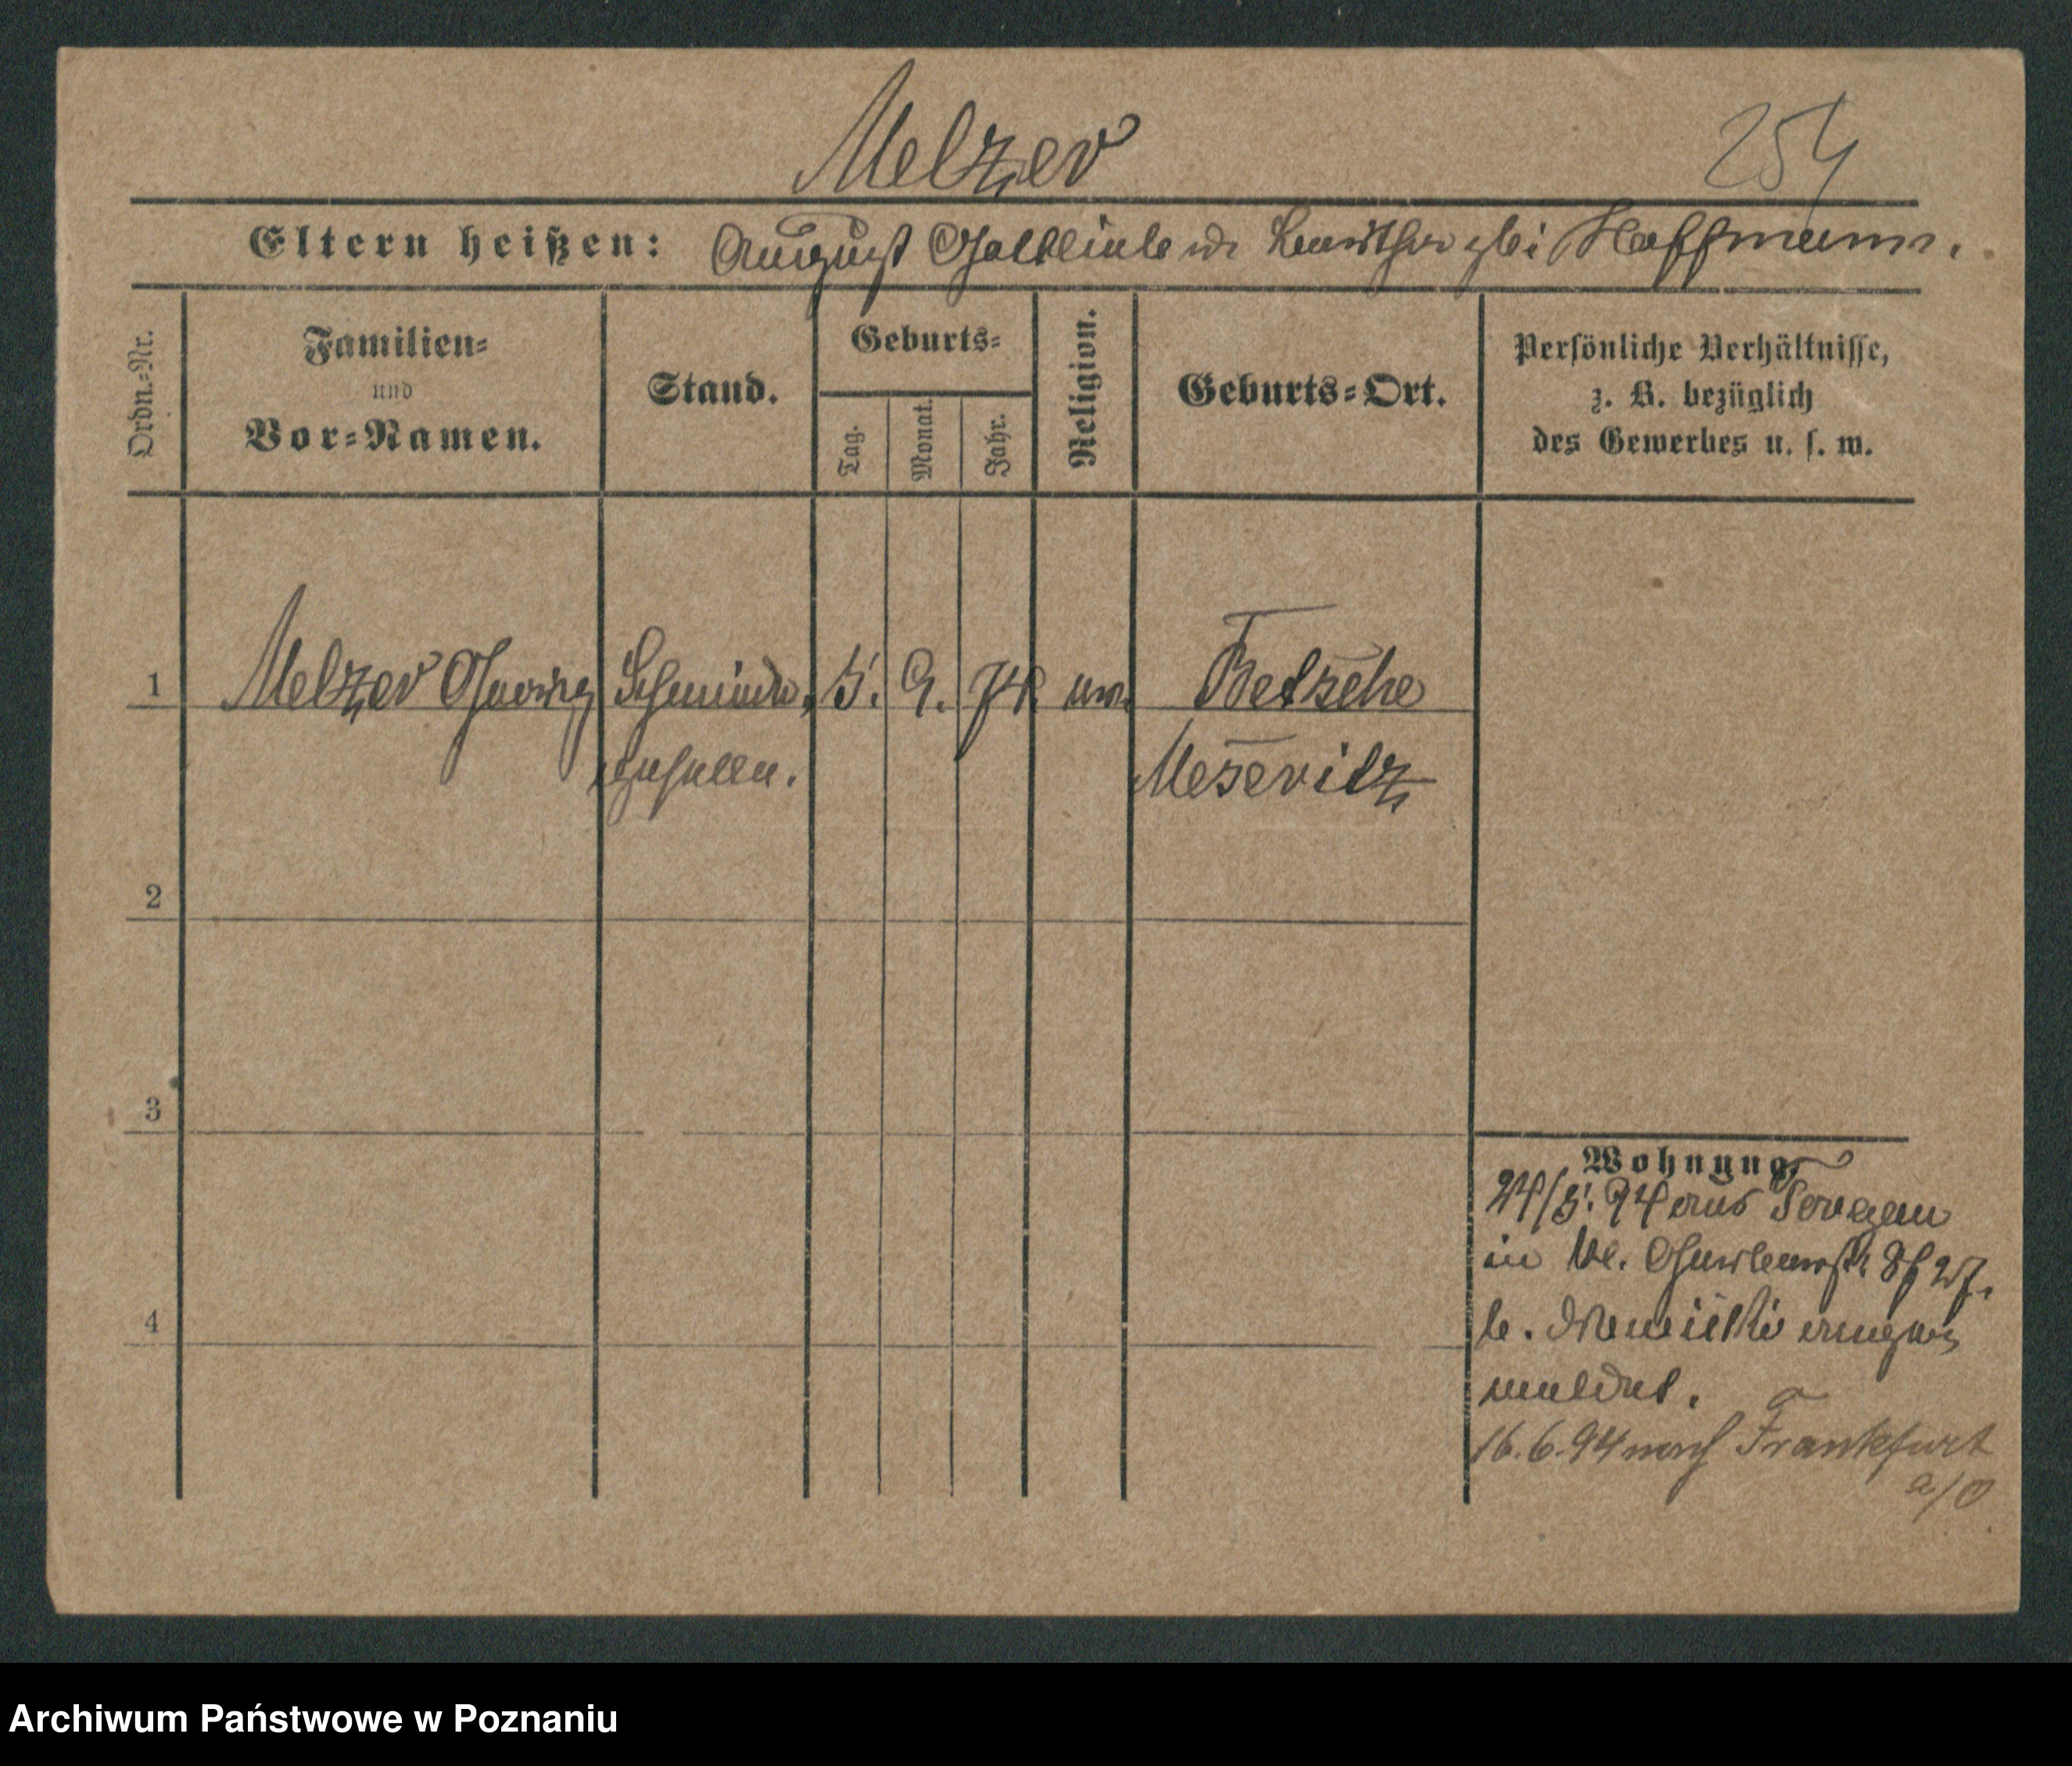 Melzer
254
Eltern heißen: August Gottlieb u. geb. Hoffmann.
Ordn.-Nr.
Familien-
und
Vor-Namen.
Stand.
Geburts-
Tag.
Monat.
Jahr.
Religion.
Geburts-Ort.
Persönliche Verhältnisse,
z. B. bezüglich
des Gewerbes u. s. w.
1 Melzer Georg Schmiede- 5. 9. 74 ev. Betsche
geselle. Meseritz
2
3
4
Wohnung.
24/5. 94 aus
in St. 27.
b. ange-
meldet.
16.6.94 nach Frankfurt
a/O
Archiwum Państwowe w Poznaniu